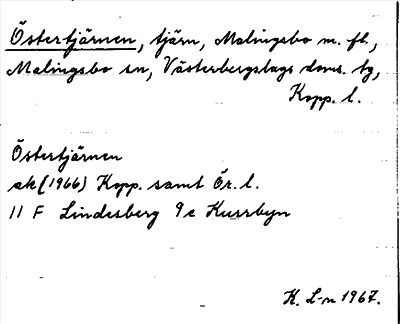 Östertjärnen, tjärn, Malingsbo m. fl.,
Malingsbo sn, Västerbergslags doms. tg,
Kopp. l.
Östertjärnen
ek (1966) Kopp. samt Ör. l.
11 F Lindesberg 9c Kussbyn
K. L-n 1967.